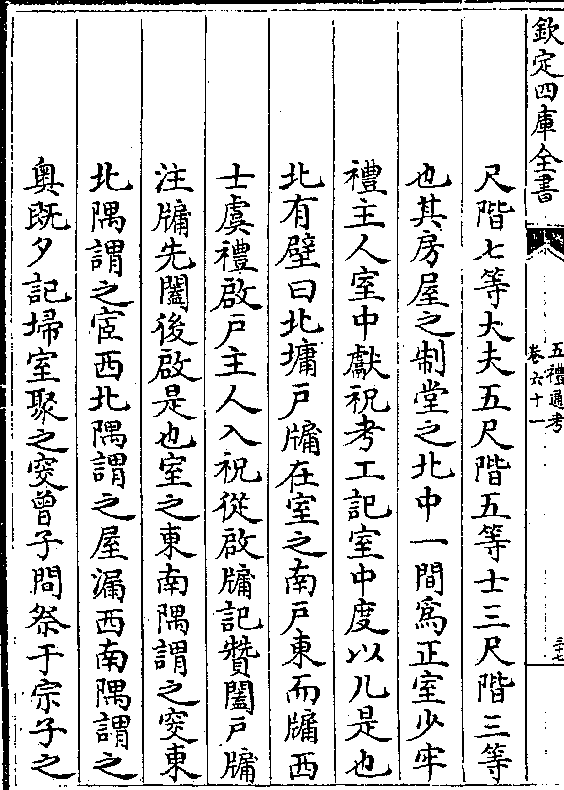 欽定四庫全書
五禮通考
卷六十一
三十七
尺階七等大夫五尺階五等士三尺階三等
也其房屋之制堂之北中一間爲正室少牢
禮主人室中獻祝考工記室中度以几是也
北有壁曰北墉戶牖在室之南戶東而牖西
士虞禮啟戶主人入祝從啟牖記贊闔戶牖
注牖先闔後啟是也室之東南隅謂之窔東
北隅謂之宧西北隅謂之屋漏西南隅謂之
奥既夕記埽室聚之窔曾子問祭于宗子之